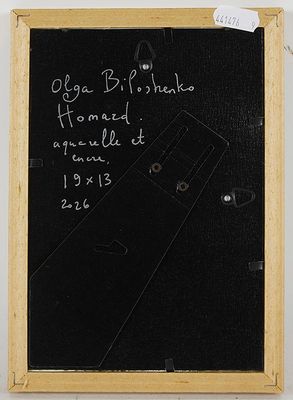 441476
Olga Biloshenko
Homard.
aquarelle et
encre,
19 x 13
2026